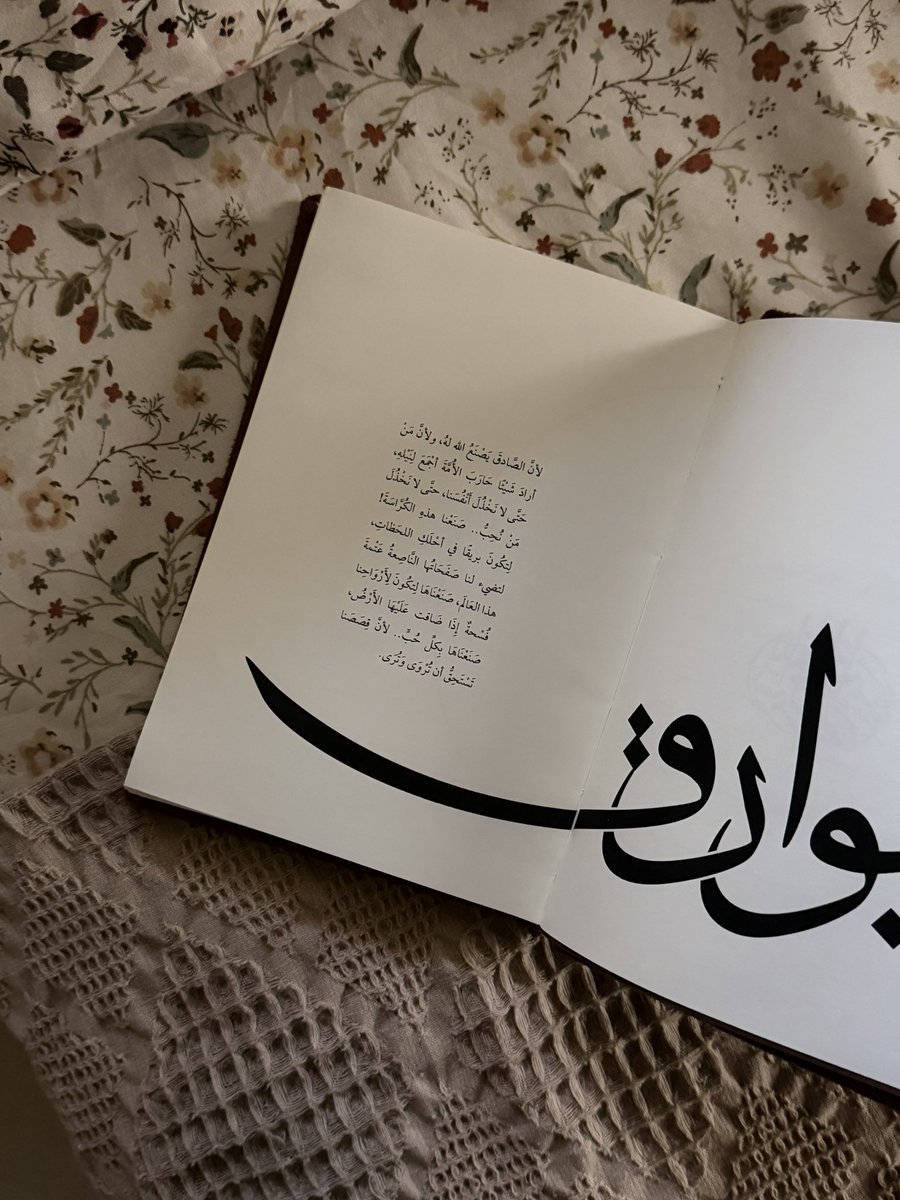 لأنَّ الصَّادقَ يَصْنَعُ الله لهُ، ولأنَّ مَنْ
أرادَ شَيْئًا حَارَبَ الأُمَّةَ أجْمَعَ لِنَيْلِهِ،
حَتَّى لا نَخْذُلَ أَنْفُسَنا، حتَّى لا نَخْذُلَ
مَنْ نُحِبُّ.. صَنَعْنا هذهِ الكُرَّاسَةَ!
لِتكُونَ بريقًا في أحْلَكِ اللحَظاتِ،
لتضيء لنا صَفَحَاتُها النَّاصِعةُ عَتْمةَ
هذا العَالَمِ، صَنَعْنَاهَا لِتكُونَ لأَرْوَاحِنا
فُسْحةٌ إذَا ضَاقت عَلَيْهَا الأَرْضُ،
صَنَعْنَاهَا بِكلِّ حُبٍّ.. لأنَّ قِصَصَنا
تَسْتَحِقُّ أن تُرْوَى وَتُرَى.
بوارق